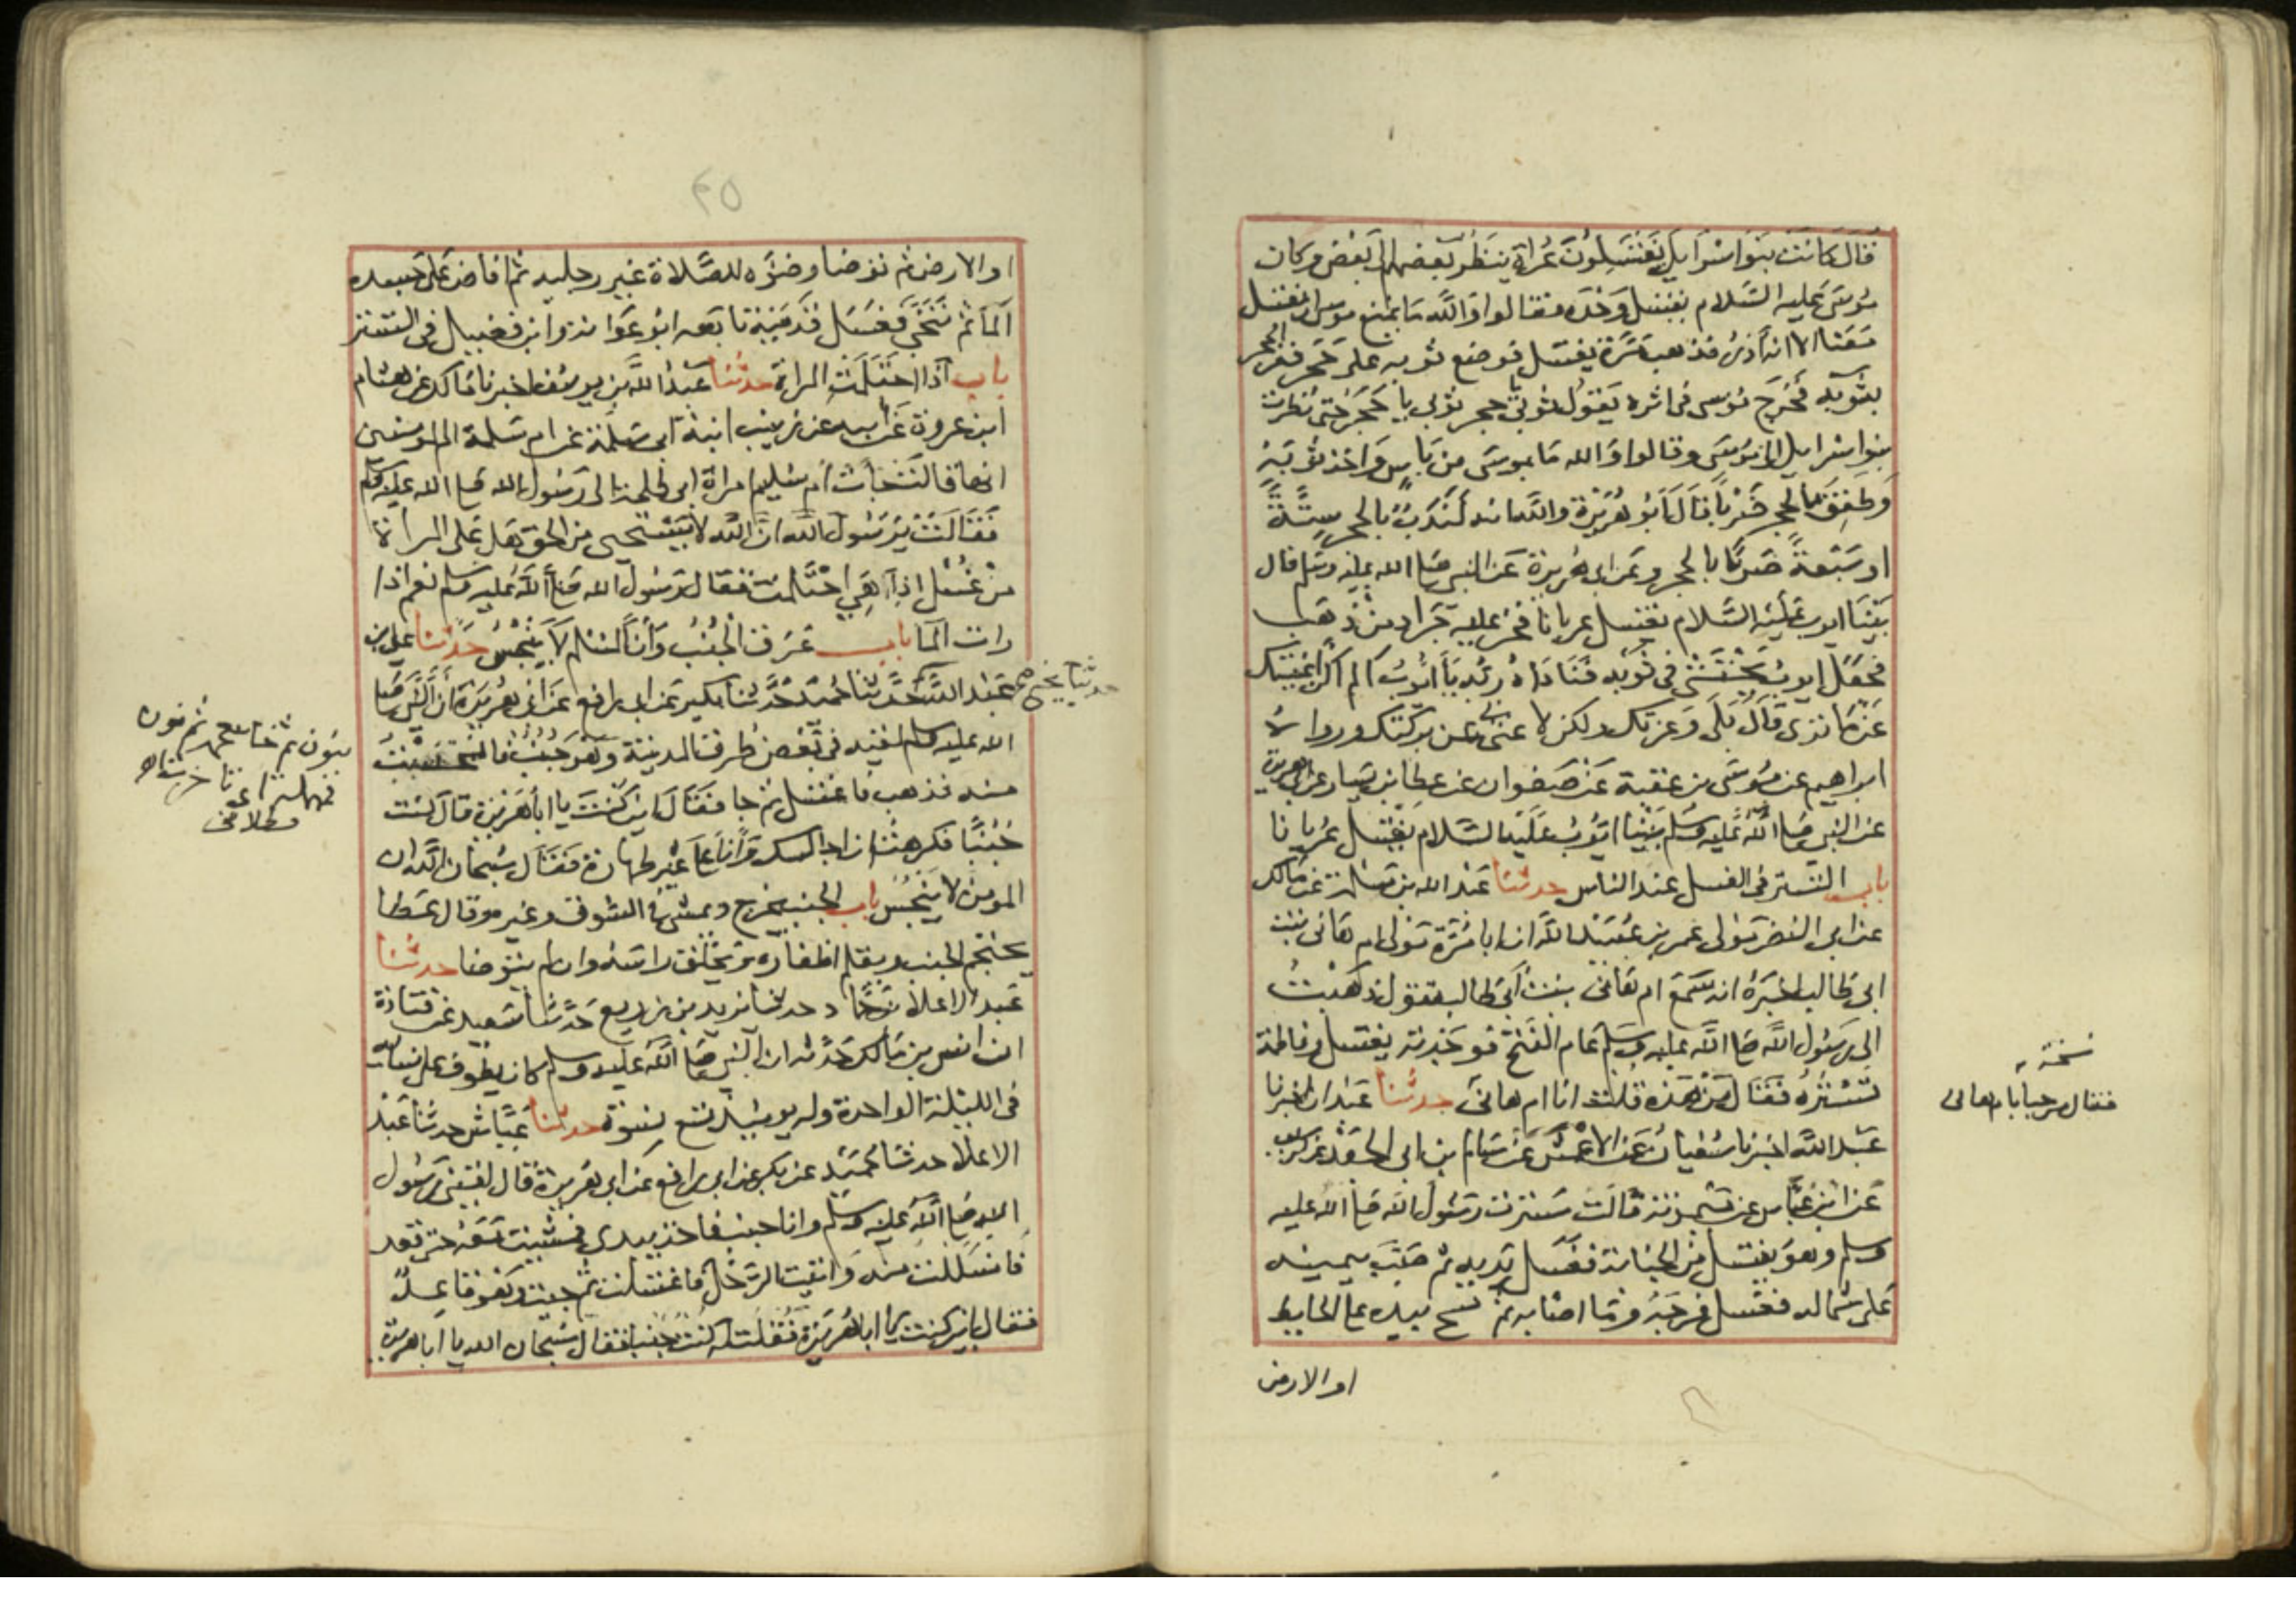 قال كانت بنوا اسرائيل يغتسلون عراة ينظر بعضهم الى بعض وكان
موسى عليه السلام يغتسل وحده فقالوا والله ما يمنع موسى ان يغتسل
معنا الا انه آدر فذهب مرة يغتسل فوضع ثوبه على حجر ففر الحجر
بثوبه فخرج موسى في اثره يقول ثوبي يا حجر ثوبي يا حجر حتى نظرت
بنوا اسرايل الى موسى وقالوا والله ما بموسى من باس واخذ ثوبه
وطفق بالحجر ضربا قال ابو هريرة والله انه لندب بالحجر ستة
او سبعة ضربا بالحجر وعن ابي هريرة عن النبي صلى الله عليه وسلم قال
بينا ايوب عليه السلام يغتسل عريانا فخر عليه جراد من ذهب
فجعل ايوب يحتثي في ثوبه فناداه ربه يا ايوب الم اكن اغنيتك
عن ما ترى قال بلى وعزتك ولكن لا غنى بي عن بركتك ورواه
ابراهيم عن موسى بن عقبة عن صفوان عن عطا بن يسار عن ابي هريرة
عن النبي صلى الله عليه وسلم بينا ايوب عليه السلام يغتسل عريانا
باب التستر في الغسل عند الناس حدثنا عبد الله بن مسلمة عن مالك
عن ابي النضر مولى عمر بن عبيد الله ان ابا مرة مولى ام هاني بنت
ابي طالب اخبره انه سمع ام هاني بنت ابي طالب تقول ذهبت
الى رسول الله صلى الله عليه وسلم عام الفتح فوجدته يغتسل وفاطمة
تستره فقال من هذه قلت انا ام هاني حدثنا عبدان اخبرنا
عبد الله اخبرنا سفيان عن الاعمش عن سالم بن ابي الجعد عن كريب
عن ابن عباس عن ميمونة قالت سترت رسول الله صلى الله عليه
وسلم وهو يغتسل من الجنابة فغسل يديه ثم صب بيمينه
على شماله فغسل فرجه وما اصابه ثم مسح بيده على الحايط
او الارض
نسخة
فقال مرحبا بام هاني
٤٥
او الارض ثم توضا وضوه للصلاة غير رجليه ثم افاض على جسده
الما ثم تنحى فغسل قدميه تابعه ابو عوانه وابن فضيل في التستر
باب اذا احتلمت المراة حدثنا عبد الله بن يوسف اخبرنا مالك عن هشام
ابن عروة عن ابيه عن زينب ابنة ابي سلمة عن ام سلمة ام المومنين
انها قالت جات ام سليم امراة ابي طلحة الى رسول الله صلى الله عليه وسلم
فقالت يرسول الله ان الله لا يستحيى من الحق هل على المراة
من غسل اذا هي احتلمت فقال رسول الله صلى الله عليه وسلم نعم اذا
رات الما باب عرق الجنب وان المسلم لا ينجس حدثنا علي بن
عبد الله حدثنا يحيى حدثنا حميد حدثنا بكير عن ابي رافع عن ابي هريرة ان النبي صلى
الله عليه وسلم لقيه في بعض طرق المدينة وهو جنب فانخنست
منه فذهب فاغتسل ثم جا فقال اين كنت يا ابا هريرة قال كنت
جنبا فكرهت ان اجالسك وانا على غير طهارة فقال سبحان الله ان
المومن لا ينجس باب الجنب يخرج ويمشي في السوق وغيره وقال عطا
يحتجم الجنب ويقلم اظفاره ويحلق راسه وان لم يتوضا حدثنا
عبد الاعلا بن حماد حدثنا يزيد بن زريع حدثنا سعيد عن قتادة
ان انس بن مالك حدثه ان النبي صلى الله عليه وسلم كان يطوف على نسايه
في الليلة الواحدة وله يوميذ تسع نسوة حدثنا عياش حدثنا عبد
الاعلا حدثنا حميد عن بكر عن ابي رافع عن ابي هريرة قال لقيني رسول
الله صلى الله عليه وسلم وانا جنب فاخذ بيدي فمشيت معه حتى قعد
فانسللت منه واتيت الرحل فاغتسلت ثم جيت وهو قاعد
فقال اين كنت يا ابا هريرة فقلت له كنت جنبا فقال سبحان الله يا ابا هريرة
حدثنا يحيى صح
بنون ثم خا معجمة ثم نون